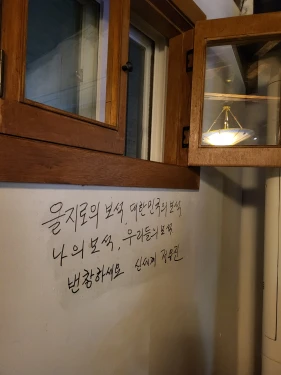 을지로의 보석, 대한민국의 보석
나의 보석, 우리들의 보석
번창하세요 신세계